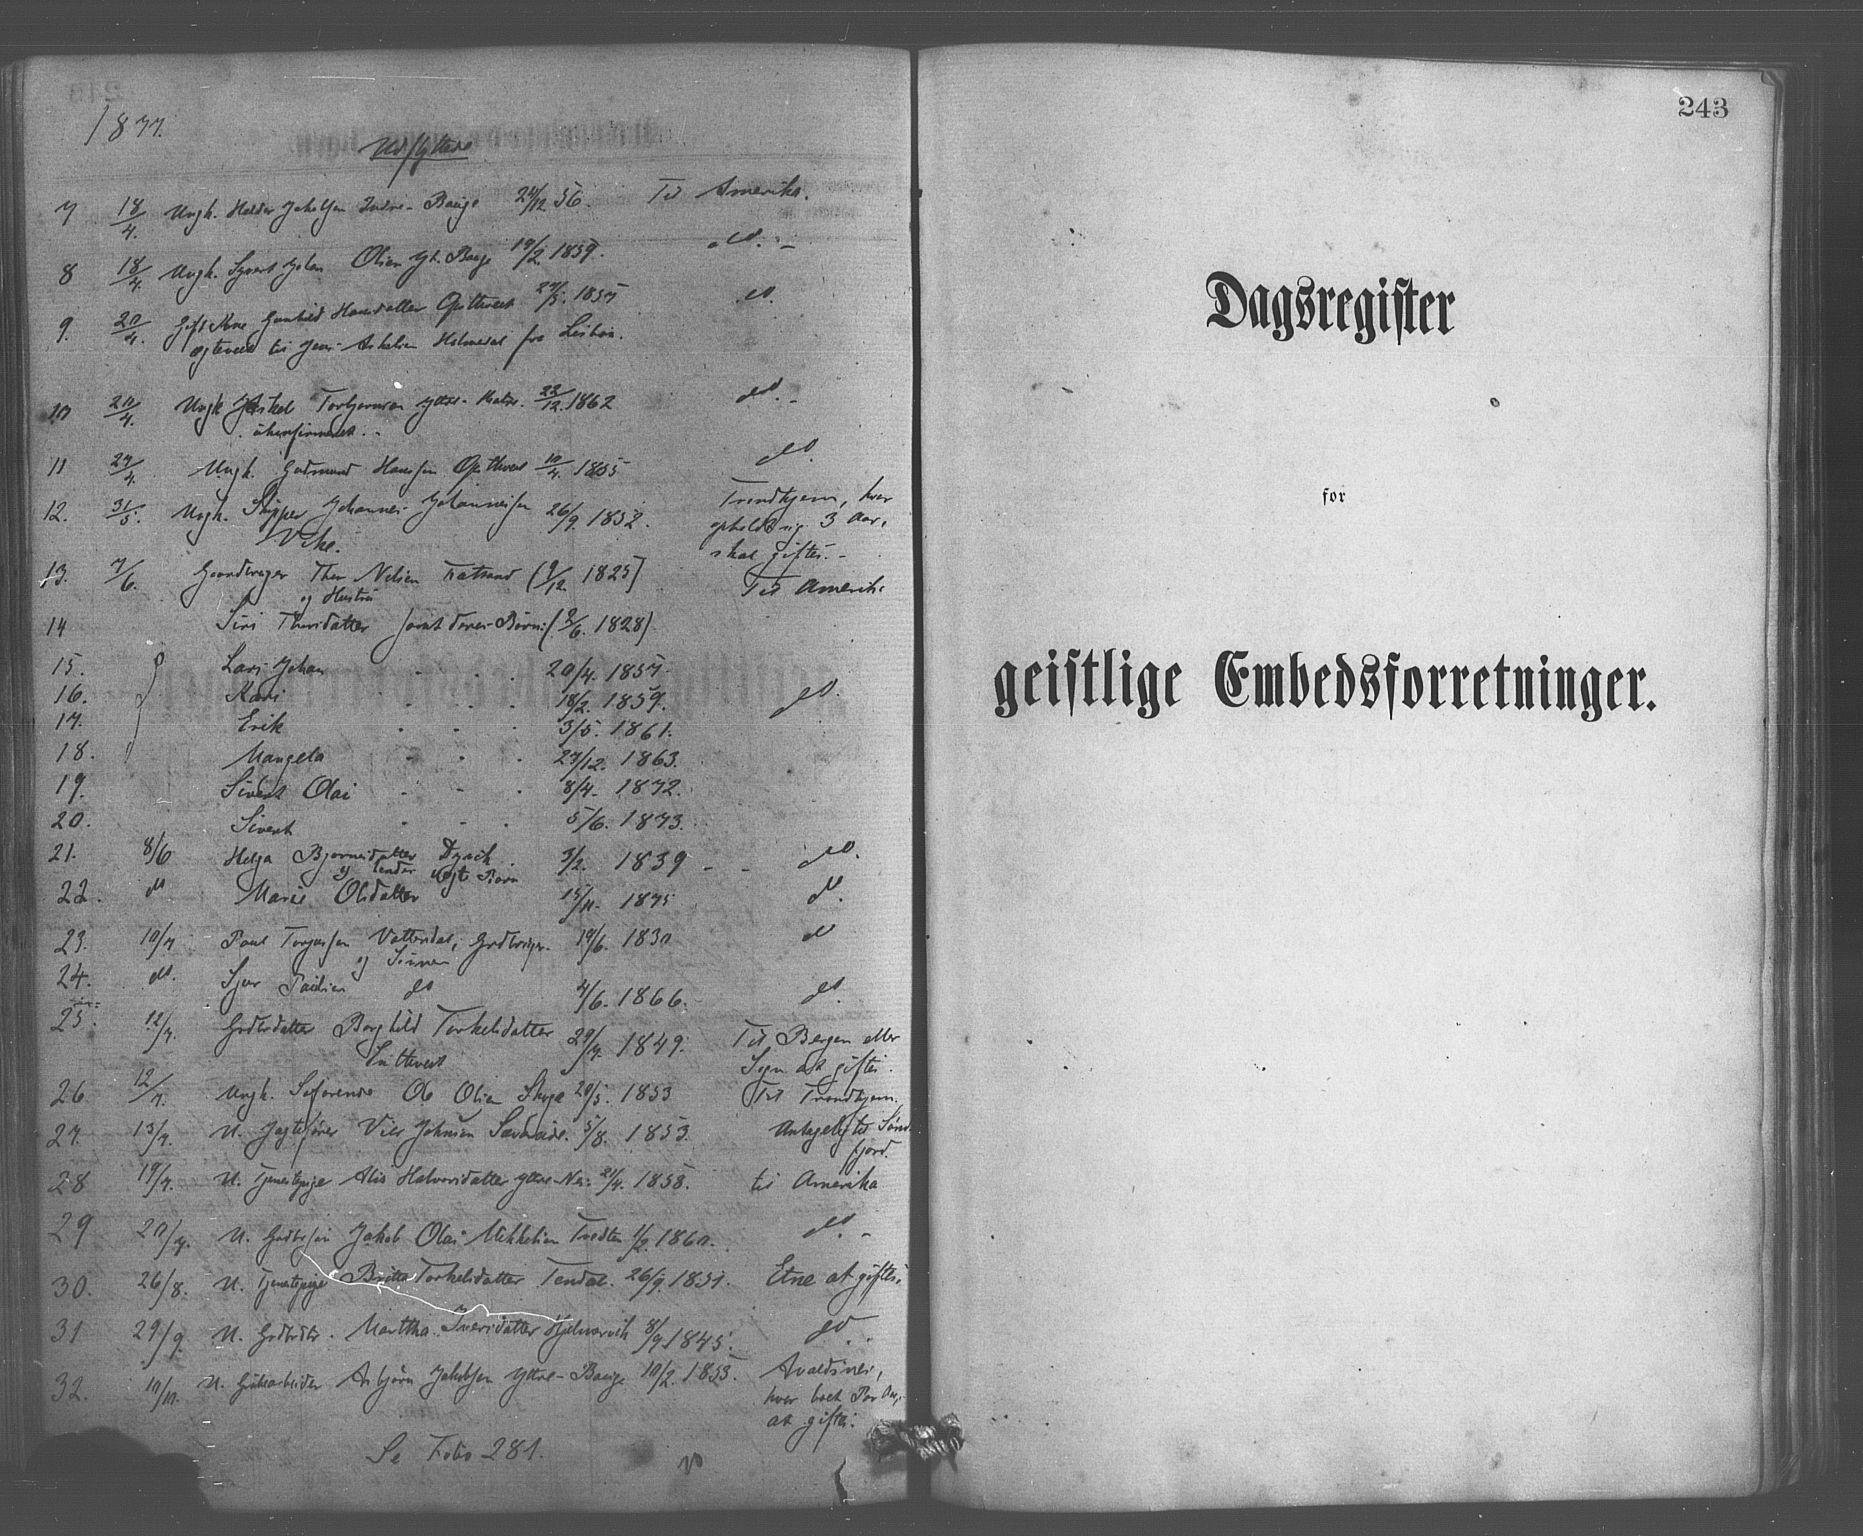 1877.
Udflyttede
7 18/4. Ungk. Jakobsen Indre- Bauge 24/12 56. Til Amerika.
8 18/4. Ungk. Syvert Johan Olsen Yt. Bauge 19/2. 1859. do. -
9. 20/4. Gift Kone Gunhild Hansdatter Opithvedt 27/5. 1857 do.
til Jens Askelsen Holmedal fra
10 20/4. Ungk. Askel Torbjørnsen Ytre- 22/12. 1862 do. -
ukonfirmeret. -
11 27/4. Ungk. Gudmund Hansen Opithvedt 10/4. 1855 do.
12. 31/5. Ungk. Skipper Johannes Johannessen 26/9. 1852. Trondhjem, hvor
Vike. opholdt sig 3 Aar,
skal giftes. -
13. 7/6. Gaardbruger Thor Nilsen Tratsand (9/12. 1825) Til Amerik.
og Hustru
14 Siri Thorsdatter samt deres Børn: (2/6. 1828)
15. Lars Johan . . . 20/4. 1857.
16. Kari . . . 18/2. 1859. do.
17. Erik . . . 3/5. 1861.
18. Mangela . . . 27/12. 1863.
19. Sivert Olai . . . 8/4. 1872.
20. Sivert . . . 5/6. 1873.
21. 8/6 Helga Bjørnesdatter Dyvik . 3/2. 1839 - - do.
og hendes uægte Barn
22. do Marie Olsdatter 15/11. 1875 do.
23. 10/7 Paul Torjussen Vatterdal, Grdbruger. 19/6. 1830 do
og Sønnen
24. do. Sjur Paulsen do 4/6. 1866. do.
25. 12/7. Grdbrdatter Borghild Torkelsdatter 29/7. 1849. Til Bergen eller
Sogn at giftes.
26 12/7. Ungk. Søfarende Ole Olsen Skoge 20/5. 1853 Til Trondhjem.
27. 13/7. U. Jagtefører Johnsen 5/8. 1853. Søndfjord.
28 19/7. U. Tjenestepige Alis Halvorsdatter Ytre-Nes. 21/4. 1858. til Amerika
29 20/7. U. Grdbrsøn Jakob Olai Mikkelsen Tvedten 1/2. 1860. do. -
30. 26/8. U. Tjenestepige Britta Torkelsdatter Tendal. 26/9. 1851. Etne at giftes.
31 29/9. U. Grdbrdtr. Martha Iversdatter Hjelmervik 8/9 1845. do. .
32. 10/11. U. Asbjørn Jakobsen Ytre- Bauge 10/2. 1853. Avaldsnes,
hvor boet Par Aar,
at giftes.
Se Folio 281.
243
Dagsregister
for
geistlige Embedsforretninger.